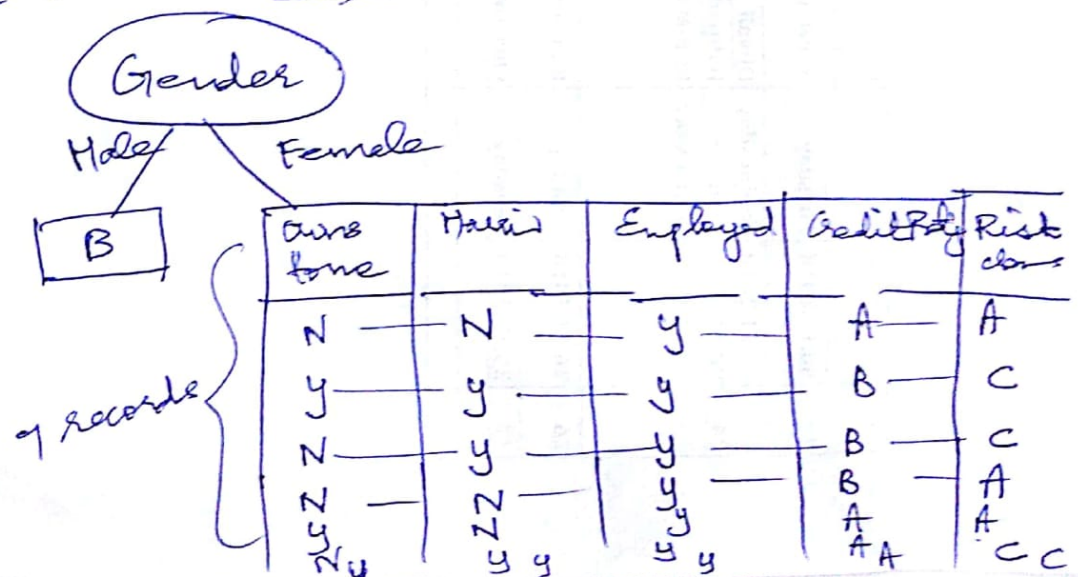 Gender
Male Female
B
Owns home Married Employed Credit Rtg Risk class
N N Y A A
Y Y Y B C
7 records
N Y Y B C
N N Y B A
Y N Y A A
N Y Y A C
Y Y Y A C